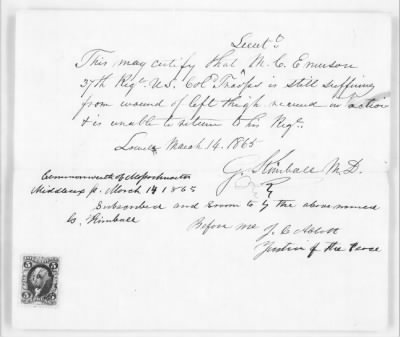 Lieut.
This may certify that M. C. Emerson
37th Regt. U.S. Cold Troops is still suffering
from wound of left thigh received in action
& is unable to return to his Regt.
Lowell March 14. 1865
G. Kimball M.D.
Commonwealth of Massachusetts
Middlesex ss. March 14 1865
Subscribed and sworn to by the above named
G. Kimball
Before me J. C. Abbott
Justice of the Peace
5 5